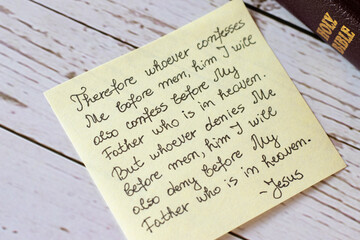 Therefore whoever confesses
Me before men, him I will
also confess before My
Father who is in heaven.
But whoever denies Me
before men, him I will
also deny before My
Father who is in heaven.
-Jesus
HOLY
BIBLE